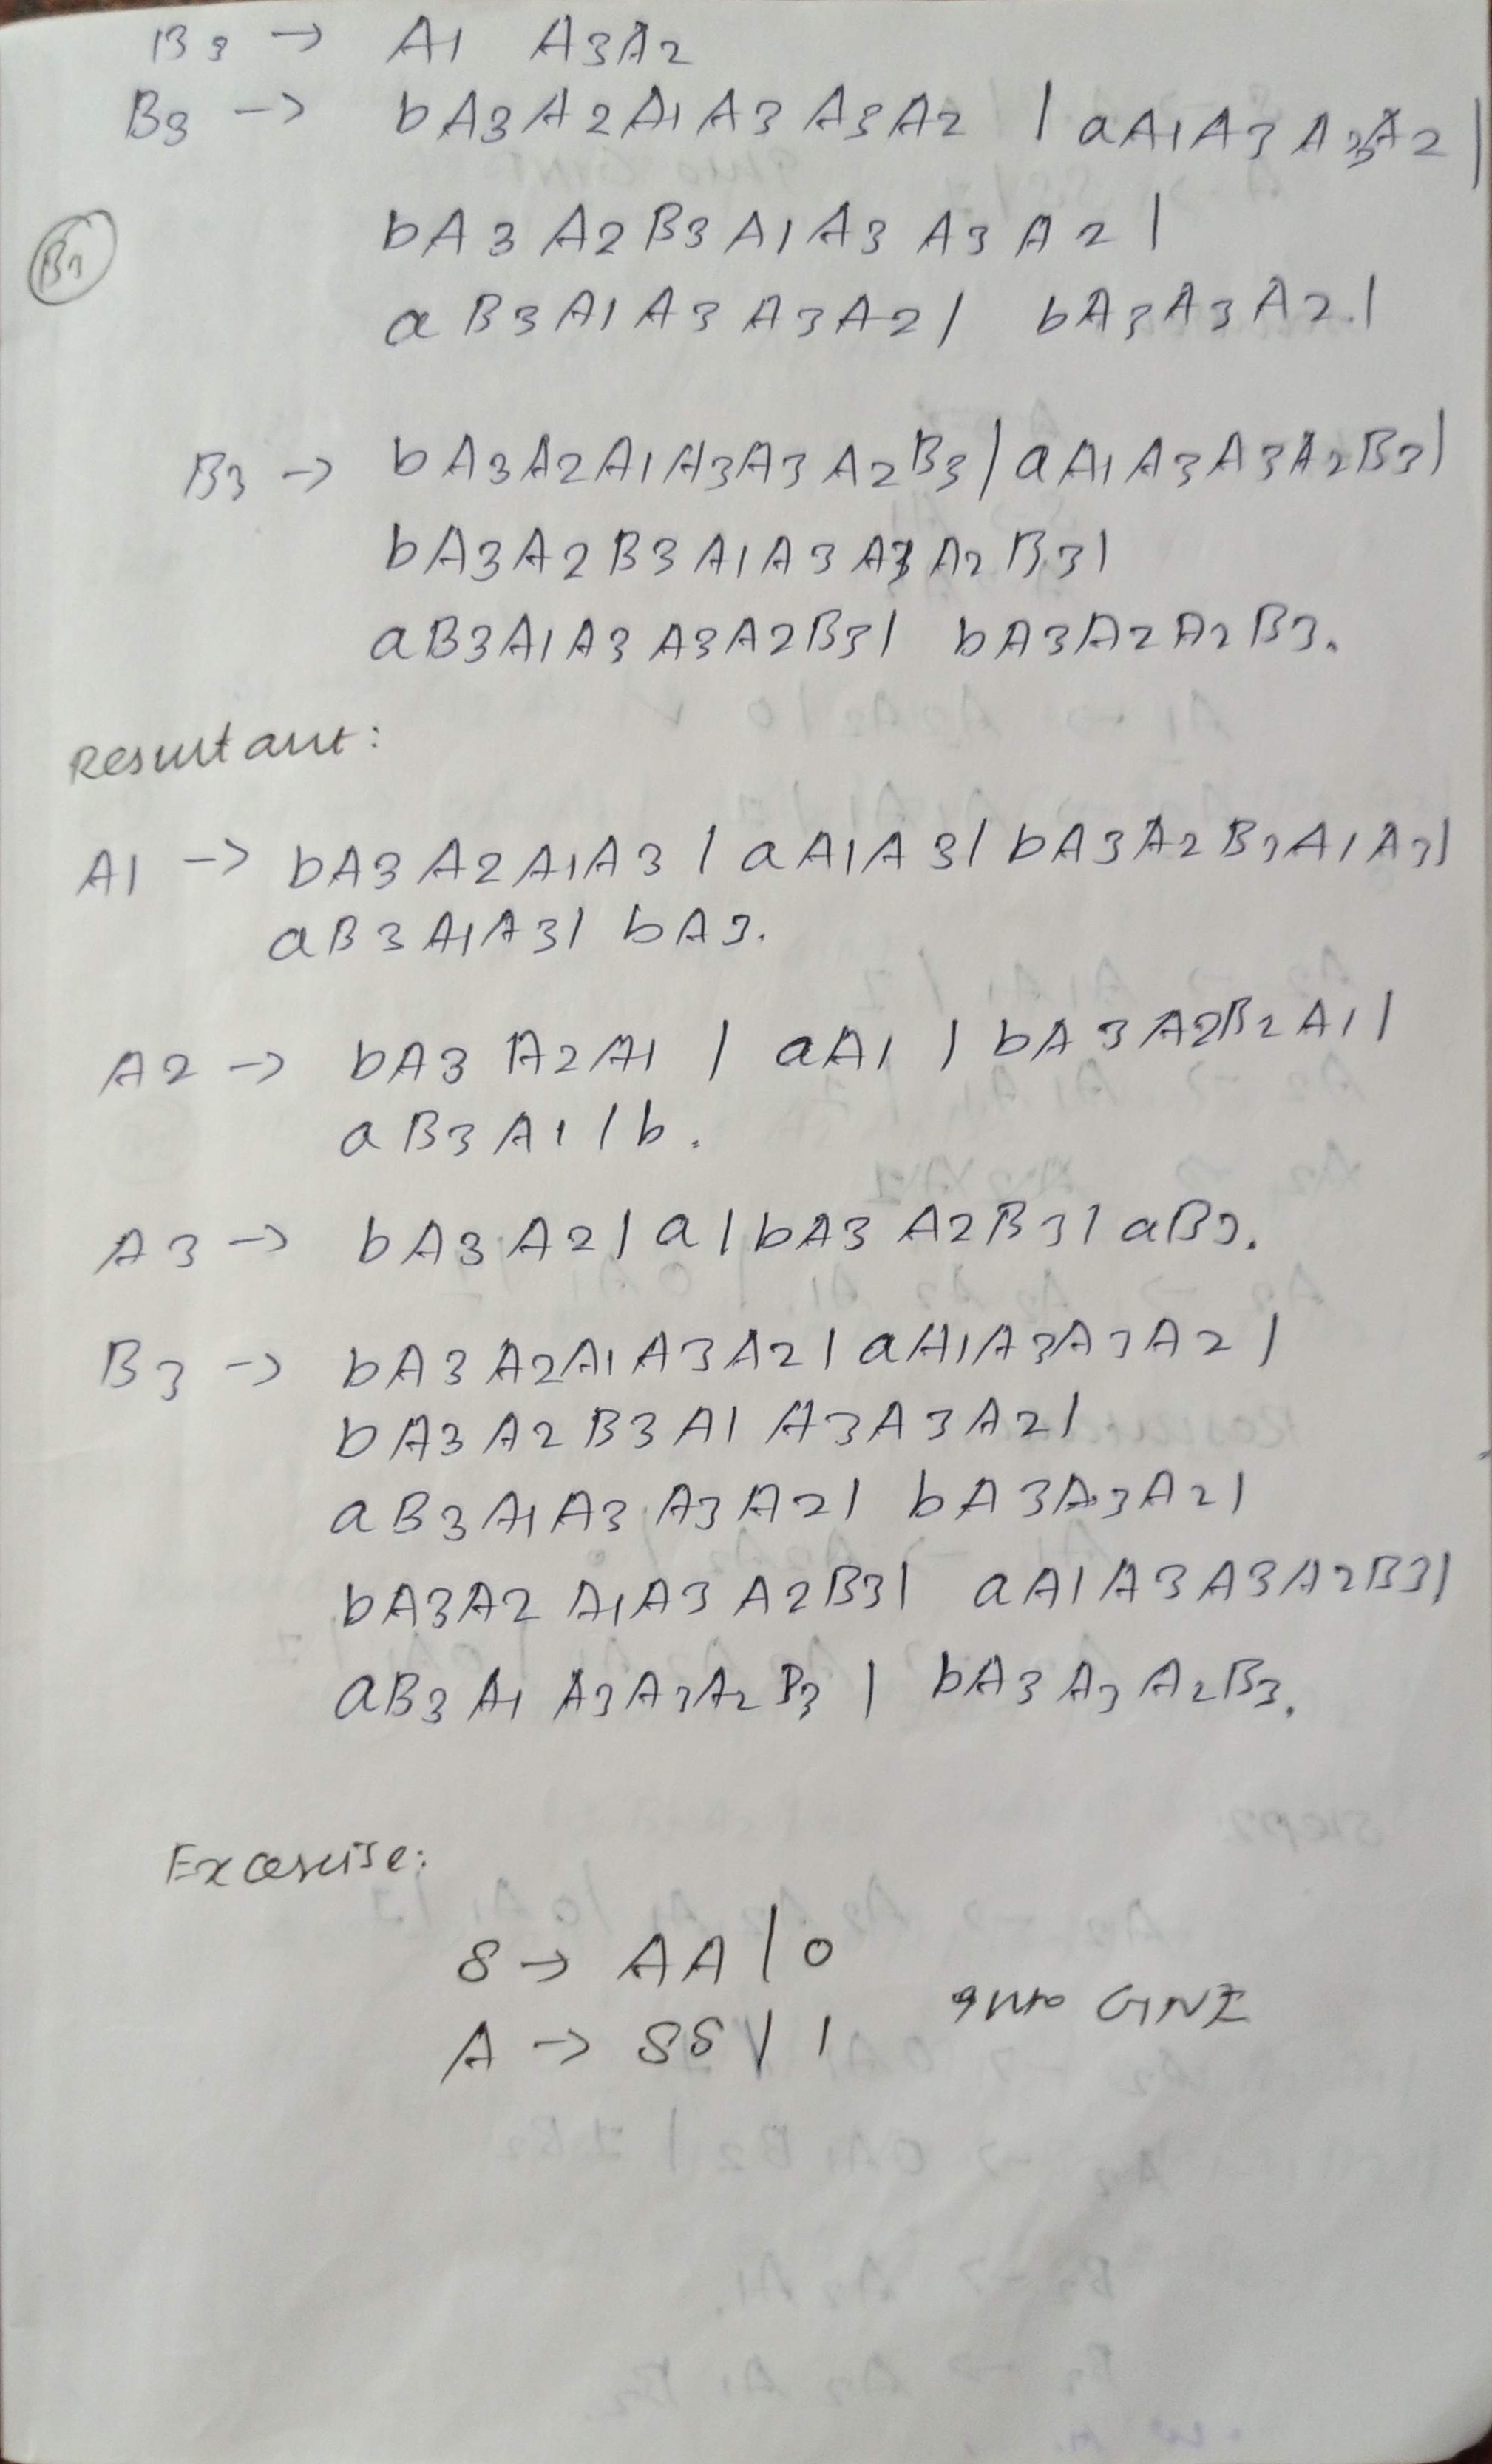 B3 → A1 A3A2
B3 → bA3A2A1A3A3A2 | aA1A3A3A2 |
B3
bA3A2B3A1A3A3A2 |
aB3A1A3A3A2 | bA3A3A2. |
B3 → bA3A2A1A3A3A2B3 | aA1A3A3A2B3 |
bA3A2B3A1A3A3A2B3 |
aB3A1A3A3A2B3 | bA3A2A2B3.
Resultant:
A1 → bA3A2A1A3 | aA1A3 | bA3A2B3A1A3 |
aB3A1A3 | bA3.
A2 → bA3A2A1 | aA1 | bA3A2B2A1 |
aB3A1 | b.
A3 → bA3A2 | a | bA3A2B3 | aB3.
B3 → bA3A2A1A3A2 | aA1A3A3A2 |
bA3A2B3A1A3A3A2 |
aB3A1A3A3A2 | bA3A3A2 |
bA3A2A1A3A2B3 | aA1A3A3A2B3 |
aB3A1A3A3A2B3 | bA3A3A2B3.
Excersise:
S → AA | 0
A → SS | 1 into GNF